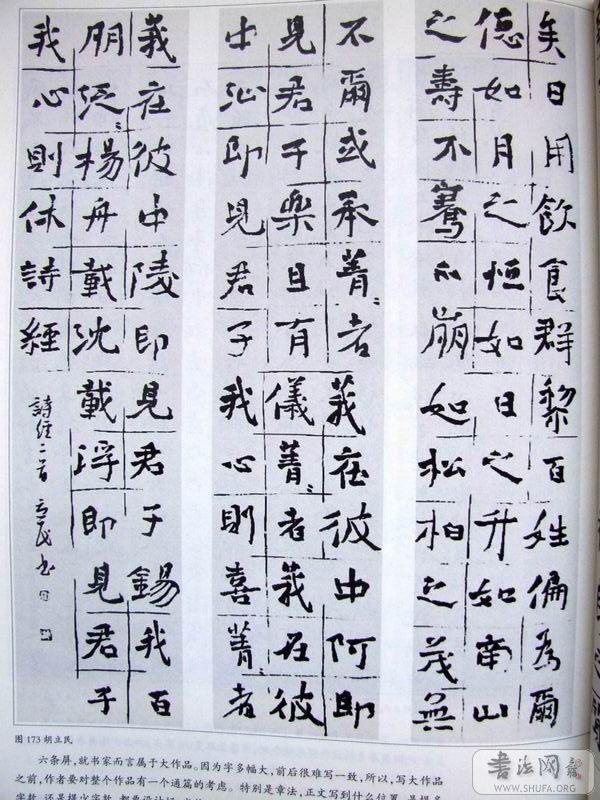 矣日用飲食群黎百姓偏為爾
德如月之恒如日之升如南山
之壽不騫不崩如松柏之茂無
不爾或承菁〻者莪在彼中阿即
見君子樂且有儀菁〻者莪在彼
中沚即見君子我心則喜菁〻者
莪在彼中陵即見君子錫我百
朋泛〻楊舟載沈載浮即見君子
我心則休詩經
詩经二首 立民书
图 173 胡立民
六条屏,就书家而言属于大作品。因为字多幅大,前后很难写一致,所以,写大作品
之前,作者要对整个作品有一个通篇的考虑。特别是章法,正文写到什么位置,是提多
书法网
WWW.SHUFA.ORG